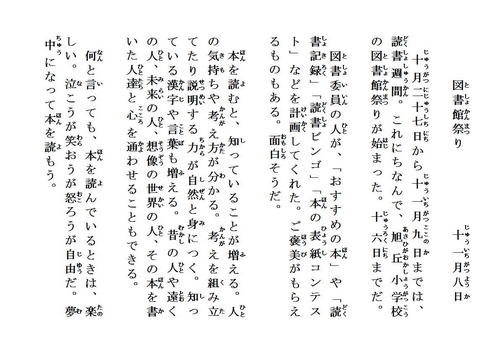 図書館祭り　十一月八日
十月二十七日から十一月九日までは、
読書週間。これにちなんで、旭丘小学校
の図書館祭りが始まった。十六日までだ。
図書委員の人が、「おすすめの本」や「読
書記録」「読書ビンゴ」「本の表紙コンテス
ト」などを計画してくれた。ご褒美がもらえ
るものもある。面白そうだ。
本を読むと、知っていることが増える。人
の気持ちや考えが分かる。考えを組み立
てたり説明する力が自然と身につく。知っ
ている漢字や言葉も増える。昔の人や遠く
の人、未来の人、想像の世界の人、その本を書
いた人達と心を通わせることもできる。
何と言っても、本を読んでいるときは、楽
しい。泣こうが笑おうが怒ろうが自由だ。夢
中になって本を読もう。